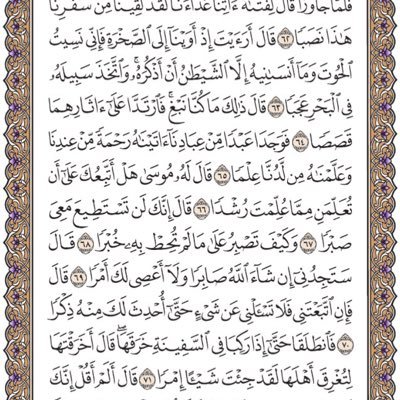 فَلَمَّا جَاوَزَا قَالَ لِفَتَىٰهُ ءَاتِنَا غَدَآءَنَا لَقَدۡ لَقِينَا مِن سَفَرِنَا
هَٰذَا نَصَبٗا ٦٢ قَالَ أَرَءَيۡتَ إِذۡ أَوَيۡنَآ إِلَى ٱلصَّخۡرَةِ فَإِنِّي نَسِيتُ
ٱلۡحُوتَ وَمَآ أَنسَىٰنِيهُ إِلَّا ٱلشَّيۡطَٰنُ أَنۡ أَذۡكُرَهُۥۚ وَٱتَّخَذَ سَبِيلَهُۥ
فِي ٱلۡبَحۡرِ عَجَبٗا ٦٣ قَالَ ذَٰلِكَ مَا كُنَّا نَبۡغِۚ فَٱرۡتَدَّا عَلَىٰٓ ءَاثَارِهِمَا
قَصَصٗا ٦٤ فَوَجَدَا عَبۡدٗا مِّنۡ عِبَادِنَآ ءَاتَيۡنَٰهُ رَحۡمَةٗ مِّنۡ عِندِنَا
وَعَلَّمۡنَٰهُ مِن لَّدُنَّا عِلۡمٗا ٦٥ قَالَ لَهُۥ مُوسَىٰ هَلۡ أَتَّبِعُكَ عَلَىٰٓ أَن
تُعَلِّمَنِ مِمَّا عُلِّمۡتَ رُشۡدٗا ٦٦ قَالَ إِنَّكَ لَن تَسۡتَطِيعَ مَعِيَ
صَبۡرٗا ٦٧ وَكَيۡفَ تَصۡبِرُ عَلَىٰ مَا لَمۡ تُحِطۡ بِهِۦ خُبۡرٗا ٦٨ قَالَ
سَتَجِدُنِيٓ إِن شَآءَ ٱللَّهُ صَابِرٗا وَلَآ أَعۡصِي لَكَ أَمۡرٗا ٦٩ قَالَ
فَإِنِ ٱتَّبَعۡتَنِي فَلَا تَسۡـَٔلۡنِي عَن شَيۡءٍ حَتَّىٰٓ أُحۡدِثَ لَكَ مِنۡهُ ذِكۡرٗا
٧٠ فَٱنطَلَقَا حَتَّىٰٓ إِذَا رَكِبَا فِي ٱلسَّفِينَةِ خَرَقَهَاۖ قَالَ أَخَرَقۡتَهَا
لِتُغۡرِقَ أَهۡلَهَا لَقَدۡ جِئۡتَ شَيۡـًٔا إِمۡرٗا ٧١ قَالَ أَلَمۡ أَقُلۡ إِنَّكَ